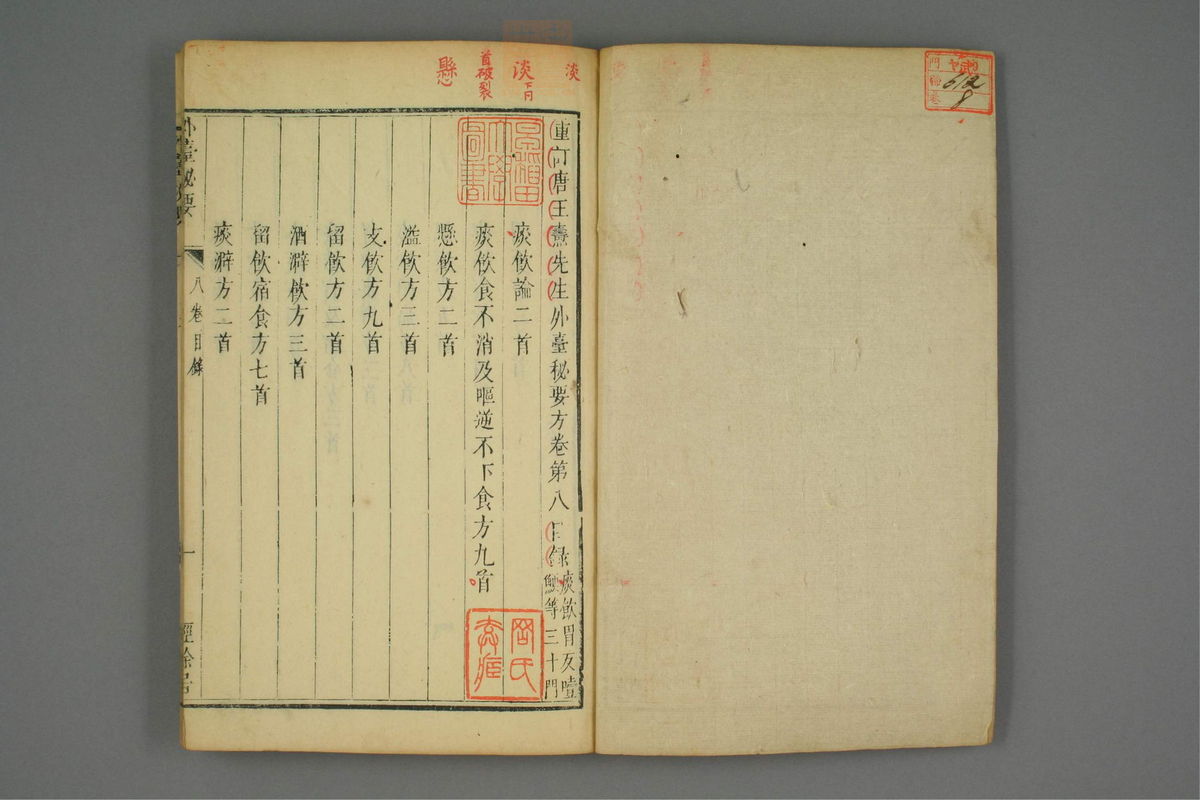 重訂唐王燾先生外臺秘要方卷第八目録
痰飲胃反噎
鯁等三十門
痰飲論二首
痰飲食不消及嘔逆不下食方九首
懸飲方二首
溢飲方三首
支飲方九首
留飲方二首
酒澼飲方三首
留飲宿食方七首
痰澼方二首
外臺秘要
八卷目錄
一
經餘居
淡
淡下同
首破裂
懸
早稲田大學圖書
612
8